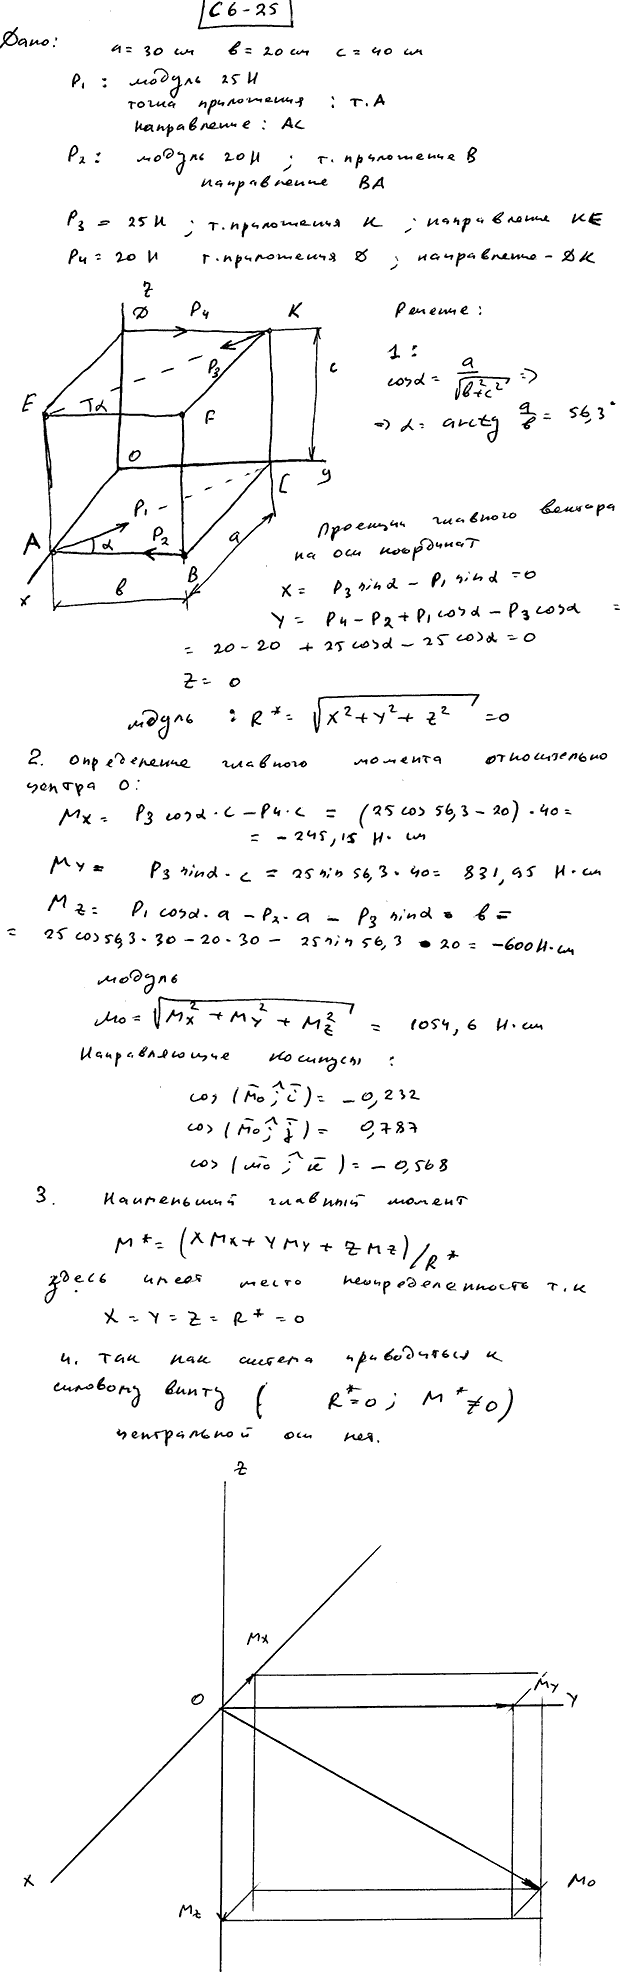 С6-25
Дано: a = 30 см в = 20 см c = 40 см
P₁ : модуль 25 Н
точка приложения : т. А
направление : АС
P₂ : модуль 20 Н ; т. приложение В
направление ВА
P₃ = 25 Н ; т. приложения К ; направление КЕ
P₄ = 20 Н т. приложения D ; направление - DK
z
D P₄ K
P₃
c
E α F
O
C y
P₁
A α P₂
a
B
x в
Решение :
1 :
cosα = a/√(в²+c²) =>
=> α = arctg a/в = 56,3°
Проекции главного вектора
на оси координат
X = P₃ sinα - P₁ sinα = 0
Y = P₄ - P₂ + P₁ cosα - P₃ cosα =
= 20 - 20 + 25 cosα - 25 cosα = 0
Z = 0
модуль : R* = √(X² + Y² + Z²) = 0
2. Определение главного момента относительно
центра О :
Mx = P₃ cosα · c - P₄ · c = (25 cos 56,3 - 20) · 40 =
= - 245,15 Н · см
My = P₃ sinα · c = 25 sin 56,3 · 40 = 831,95 Н · см
Mz = P₁ cosα · a - P₂ · a - P₃ sinα · в =
= 25 cos 56,3 · 30 - 20 · 30 - 25 sin 56,3 · 20 = -600 Н · см
модуль
Mo = √(Mx² + My² + Mz²) = 1054,6 Н · см
Направляющие косинусы :
cos (M̄o ; ī) = - 0,232
cos (M̄o ; j̄) = 0,787
cos (m̄o ; к̄) = - 0,568
3. Наименьший главный момент
M* = (XMx + YMy + ZMz)/R*
здесь имеет место неопределенность т.к
X = Y = Z = R* = 0
4. так как система приводиться к
силовому винту ( R* = 0 ; M* ≠ 0)
центральной оси нет.
z
Mx
O My Y
X
Mz Mo